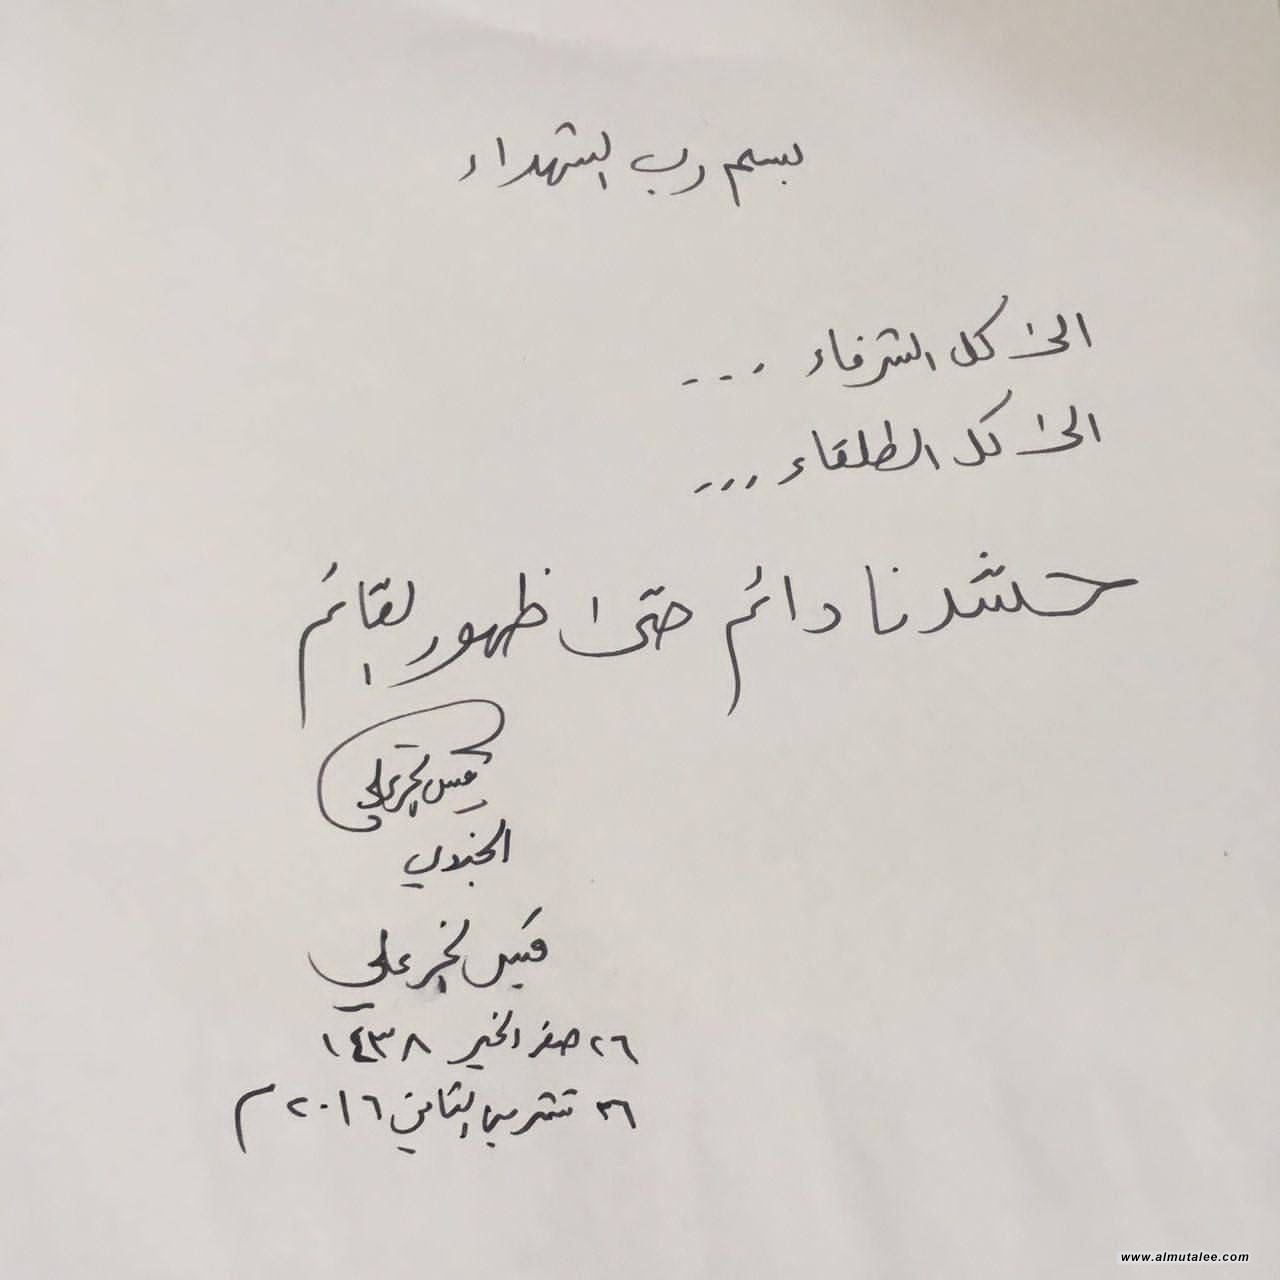 بسم رب الشهداء
الى كل الشرفاء ...
الى كل الطلقاء ...
حشدنا دائم حتى ظهور القائم
قيس الخزعلي
الجندي
قيس الخزعلي
٢٦ صفر الخير ١٤٣٨
٢٦ تشرين الثاني ٢٠١٦ م
www.almutalee.com